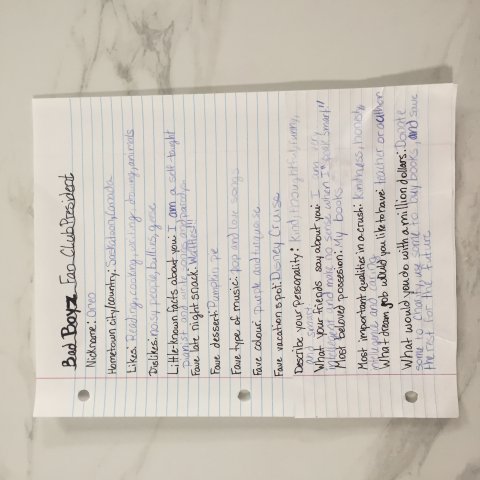 Bad Boyz Fan Club President
Nickname: Oreo
Hometown city/country: Saskatoon, Canada
Likes: Reading, cooking, writing, drawing, animals
Dislikes: nosy people, bullies, geese
Little-known facts about you: I am a self-taught
pianist and
Fave late night snack: Waffles!!!
Fave dessert: Pumpkin pie
Fave type of music: pop and love songs
Fave colour: Purple and turquoise
Fave vacation spot: Disney Cruise
Describe your personality: Kind, thoughtful, funny,
and smart
What your friends say about you: I am very
intelligent and make no sense when I speak smart!!
Most beloved possession: My books
Most important qualities in a crush: Kindness, honesty,
and caring
What dream job would you like to have: teacher or author
What would you do with a million dollars: Donate
some to charity, use some to buy books, and save
the rest for the future